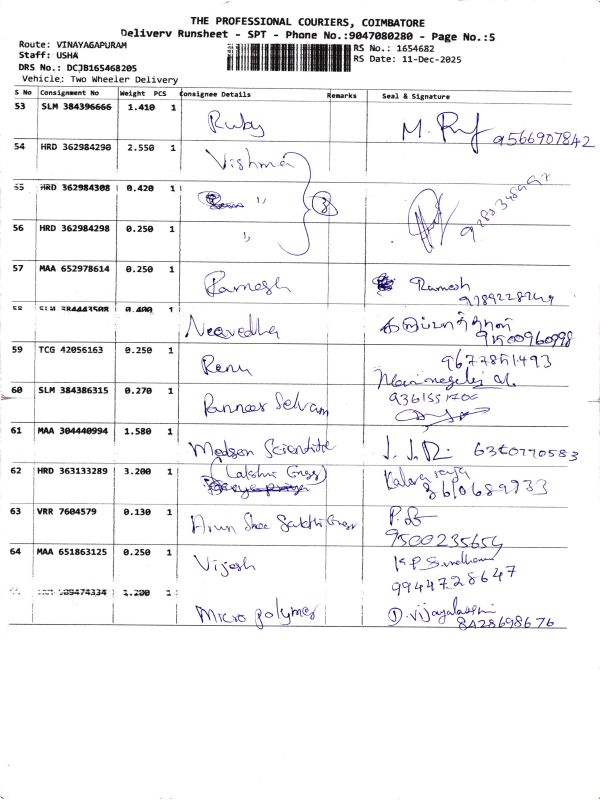 THE PROFESSIONAL COURIERS, COIMBATORE
Delivery Runsheet - SPT - Phone No.:9047080280 - Page No.:5
Route: VINAYAGAPURAM
Staff: USHA
DRS No.: DCJB165468205
Vehicle: Two Wheeler Delivery
RS No.: 1654682
RS Date: 11-Dec-2025
S No Consignment No Weight PCS Consignee Details Remarks Seal & Signature
53 SLM 384396666 1.410 1 Ruby M. 9566907842
54 HRD 362984290 2.550 1 Vishma
55 HRD 362984308 0.420 1 " 3
56 HRD 362984298 0.250 1 "
57 MAA 652978614 0.250 1 Ramesh Ramesh
58 SLM 384443508 0.400 1 Neevedha கருப்பாத்தாள்
9500960998
59 TCG 42056163 0.250 1 Renu 9677851493
60 SLM 384386315 0.270 1 Panneer Selvam
61 MAA 304440994 1.580 1 Modsen Scientific J. J. R. 6380770583
62 HRD 363133289 3.200 1 (Lakshmi Engg)
8610689933
63 VRR 7604579 0.130 1 Arun Shee Sakthi Engg P.
9500235654
64 MAA 651863125 0.250 1 Vijesh K.P Sundharam
9944728647
109474334 1.200 1 Micro polymer D. Vijayalaxmi
8428698676